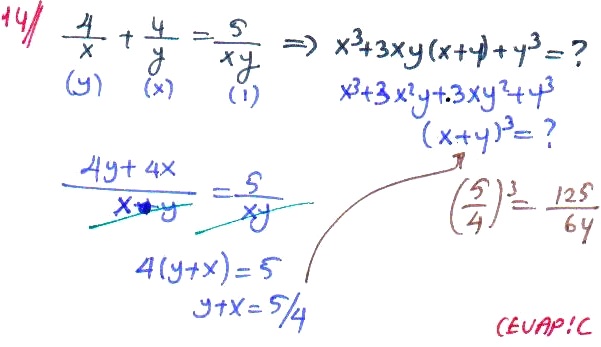 14/ 4/x + 4/y = 5/xy => x³+3xy(x+y)+y³=?
(y) (x) (1) x³+3x²y+3xy²+y³
(x+y)³=?
4y+4x/x·y = 5/xy
(5/4)³ = 125/64
4(y+x)=5
y+x=5/4
CEVAP:C